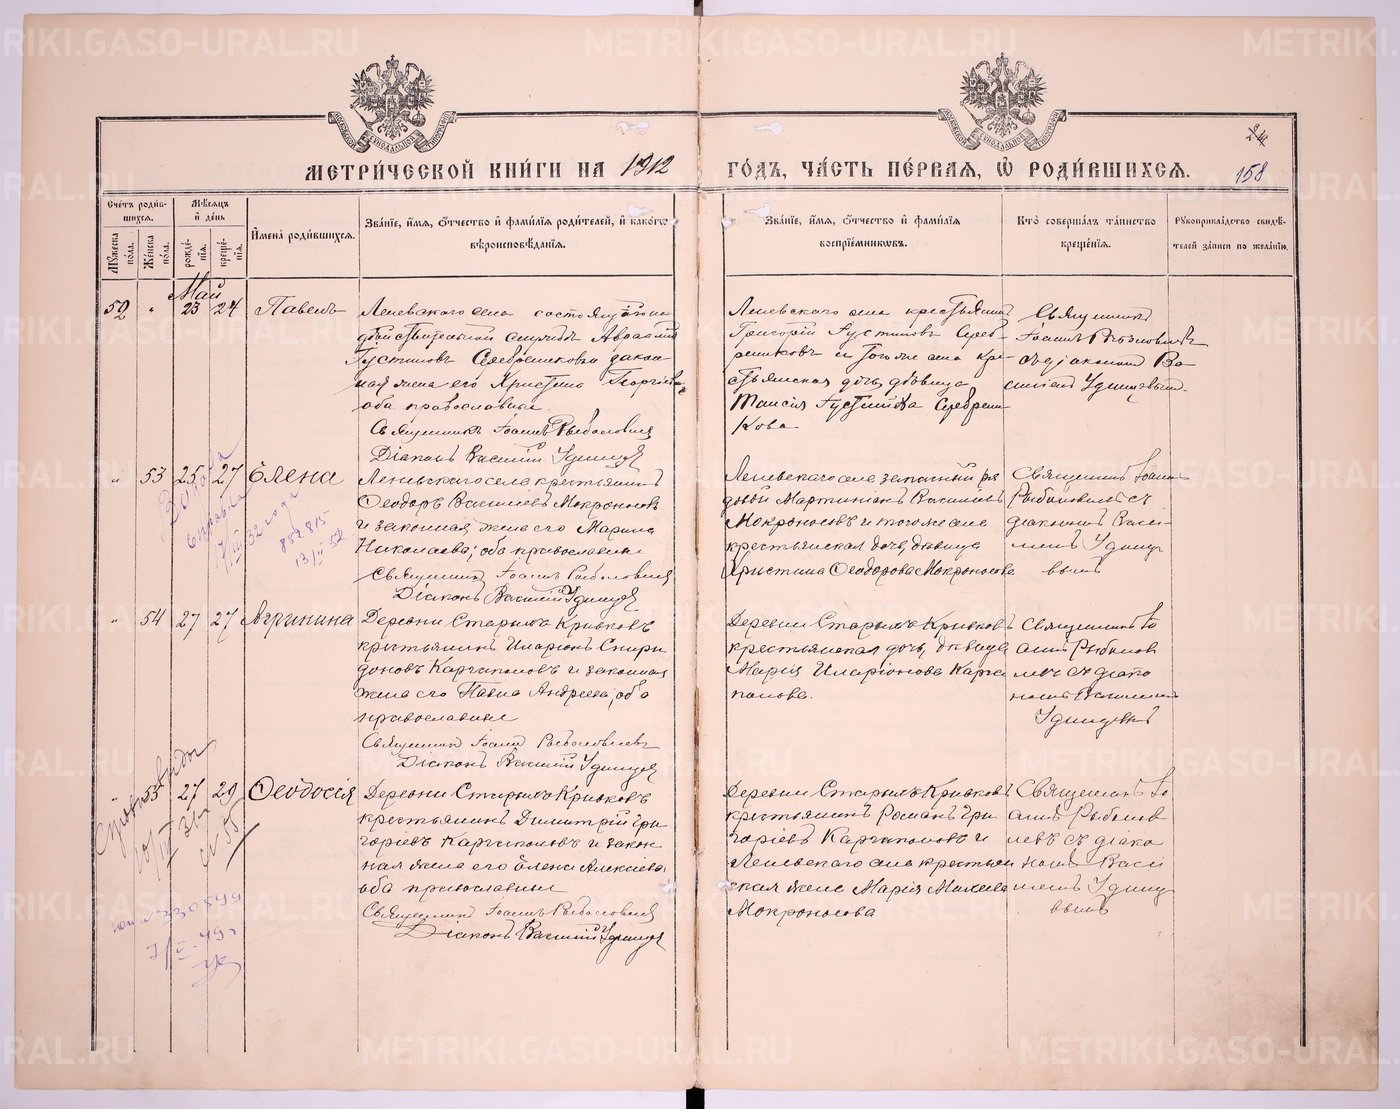 МЕТРИ́ЧЕСКОЙ КНИ́ГИ НА 1912
ГО́ДЪ, ЧА́СТЬ ПЕ́РВАЯ, Ѡ҆ РОДИ́ВШИХСЯ.
158
Сче́тъ роди́в-
шихся.
Му́жеска по́ла.
Же́нска по́ла.
Мѣ́сяцъ
и҆ де́нь
рожде́-
нїя.
креще́-
нїя.
И҆мена̀ роди́вшихся.
Зва́нїе, и҆́мя, ѻ҆́тчество и҆ фами́лїя роди́телей, и҆ како́гѡ
вѣроисповѣ́данїя.
Зва́нїе, и҆́мя, ѻ҆́тчество и҆ фами́лїя
воспрїе́мниковъ.
Кто̀ соверша́лъ та́инство
креще́нїя.
Рукоприкла́дство свидѣ́-
телей за́писи по жела́нїю.
Май
52 " 23 24 Павелъ
Леневскаго села состоящій на
дѣйствительной службѣ Авраамій
Густиновъ Серебренниковъ и закон-
ная жена его Христина Георгіева
оба православные
Священникъ Іоаннъ Рыболовлев
Діаконъ Василій Удинцев
Леневскаго села крестьянинъ
Григорій Густиновъ Сереб-
ренниковъ и тогоже села кре-
стьянская дочь, дѣвица
Таисія Густинова Серебренни-
кова
Священникъ
Іоаннъ Рыболовлевъ
съ діакономъ Ва-
силіемъ Удинцевымъ
" 53 25 27 Елена
Леневскаго села крестьянинъ
Ѳеодоръ Васильевъ Мокроносовъ
и законная жена его Марина
Николаева; оба православные
Священникъ Іоаннъ Рыболовлев
Діаконъ Василій Удинцев
Леневскаго села запасный ря-
довой Мартиніанъ Васильевъ
Мокроносовъ и тогоже села
крестьянская дочь, дѣвица
Христина Ѳеодорова Мокроносова
Священникъ Іоаннъ
Рыболовлевъ съ
діакономъ Васи-
ліемъ Удинце-
вымъ
" 54 27 27 Агриппина
Деревни Старыхъ Кривковъ
крестьянинъ Иларіонъ Спири-
доновъ Каргаполовъ и законная
жена его Павла Андреева; оба
православные
Священникъ Іоаннъ Рыболовлевъ
Діаконъ Василій Удинцев
Деревни Старыхъ Кривковъ
крестьянская дочь, дѣвица
Марія Иларіонова Карга-
полова.
Священникъ Іо-
аннъ Рыболов-
левъ съ діако-
номъ Василіемъ
Удинцевымъ
" 55 27 29 Ѳеодосія
Деревни Старыхъ Кривковъ
крестьянинъ Димитрій Гри-
горіевъ Каргаполовъ и закон-
ная жена его Елена Алексіева,
оба православные
Священникъ Іоаннъ Рыболовлев
Діаконъ Василій Удинцев
Деревни Старыхъ Кривковъ
крестьянинъ Романъ Гри-
горіевъ Каргаполовъ и
Леневскаго села крестьян-
ская жена Марія Михеева
Мокроносова
Священникъ Іо-
аннъ Рыболов-
левъ съ діако-
номъ Васи-
ліемъ Удинце-
вымъ
METRIKI.GASO-URAL.RU